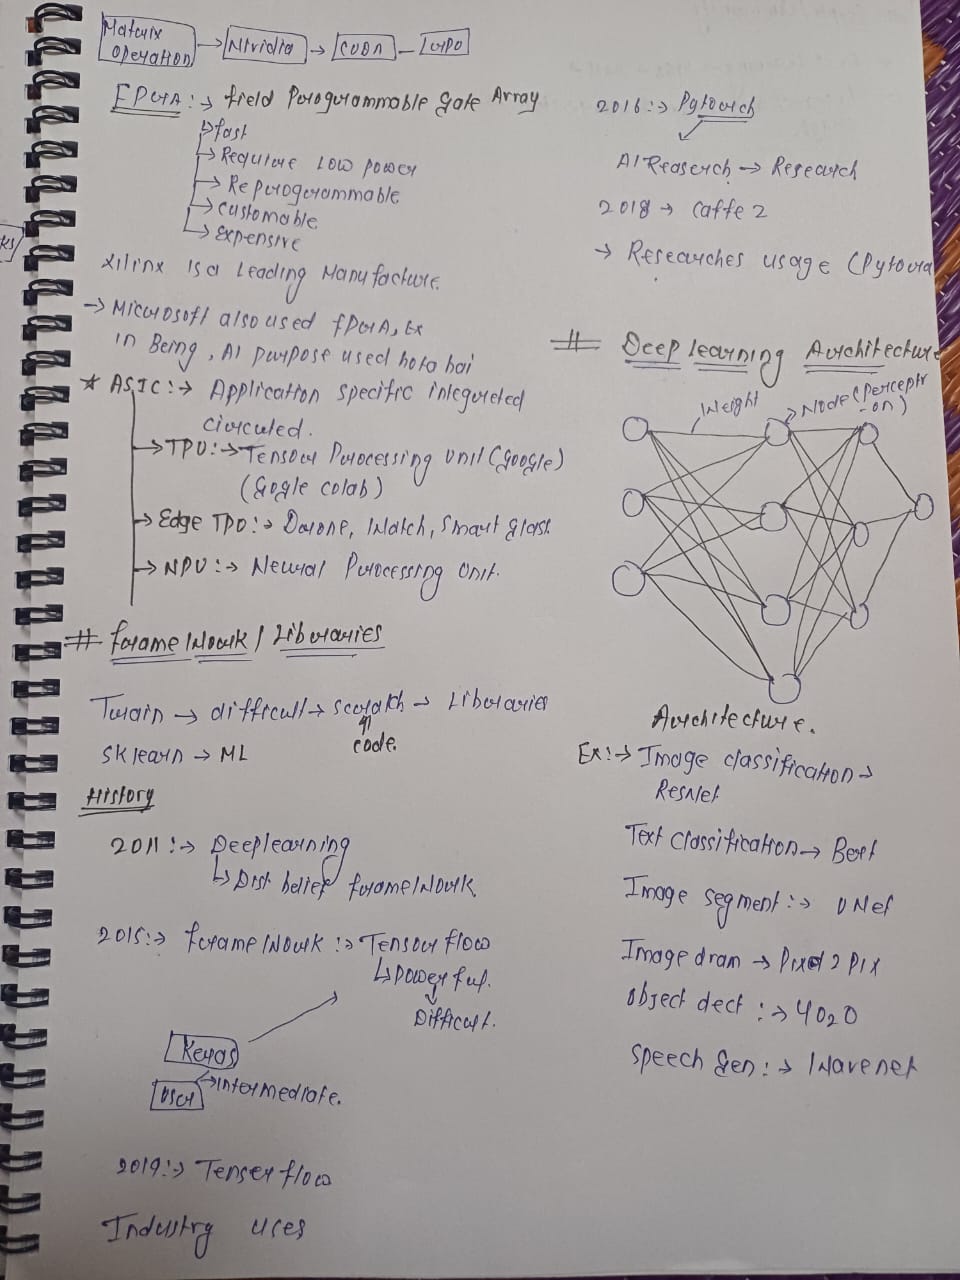 Matrix Operation → Nividia → CUDA - GPU
FPGA :→ field Programmable Gate Array
→ fast
→ Require Low power
→ Reprogrammable
→ customable
→ Expensive
Xilinx is a Leading Manufacture.
→ Microsoft also used fPGA, Ex
in Being, AI purpose used hota hai
* ASIC :→ Application specific integreted
circuted.
→ TPU :→ Tensor Processing Unit (google)
(Gogle colab)
→ Edge TPU :→ Drone, Watch, Smart glass.
→ NPU :→ Neural Processing Unit.
# frameWork / Libraries
Train → difficult → scratch → Libraries
↑
code.
Sklearn → ML
History
2011 :→ Deeplearning
↳ Dist belief frameWork.
2015 :→ frameWork :→ Tensor flow
↳ powerful.
↓
Difficult.
Keras
→ Intermediate.
User
2019 :→ Tenser flow
Industry uses
2016 :→ Pytorch
AI Reaserch → Research
2018 → Caffe 2
→ Researches usage (Pytorc
# Deep learning Architecture
Weight
Node (perceptr
-on)
Architecture.
Ex :→ Image classification →
ResNet
Text Classification → Bert
Image segment :→ UNet
Image dram → Pix2Pix
Object dect :→ YOLO
Speech Gen :→ Wavenet